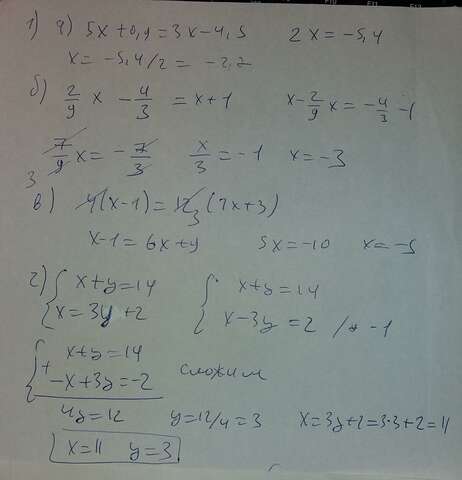 1) а) 5x+0,9=3x-4,5 2x=-5,4
x=-5,4/2=-2,2
б) 2/9 x - 4/3 = x+1 x-2/9 x=-4/3-1
7/9 x=-7/3 x/3=-1 x=-3
3
в) 4(x-1)=12 3 (7x+3)
x-1=6x+9 5x=-10 x=-5
г) { x+y=14 { x+y=14
x=3y+2 x-3y=2 /* -1
{ x+y=14
+ -x+3y=-2 сложим
4y=12 y=12/4=3 x=3y+2=3·3+2=11
x=11 y=3